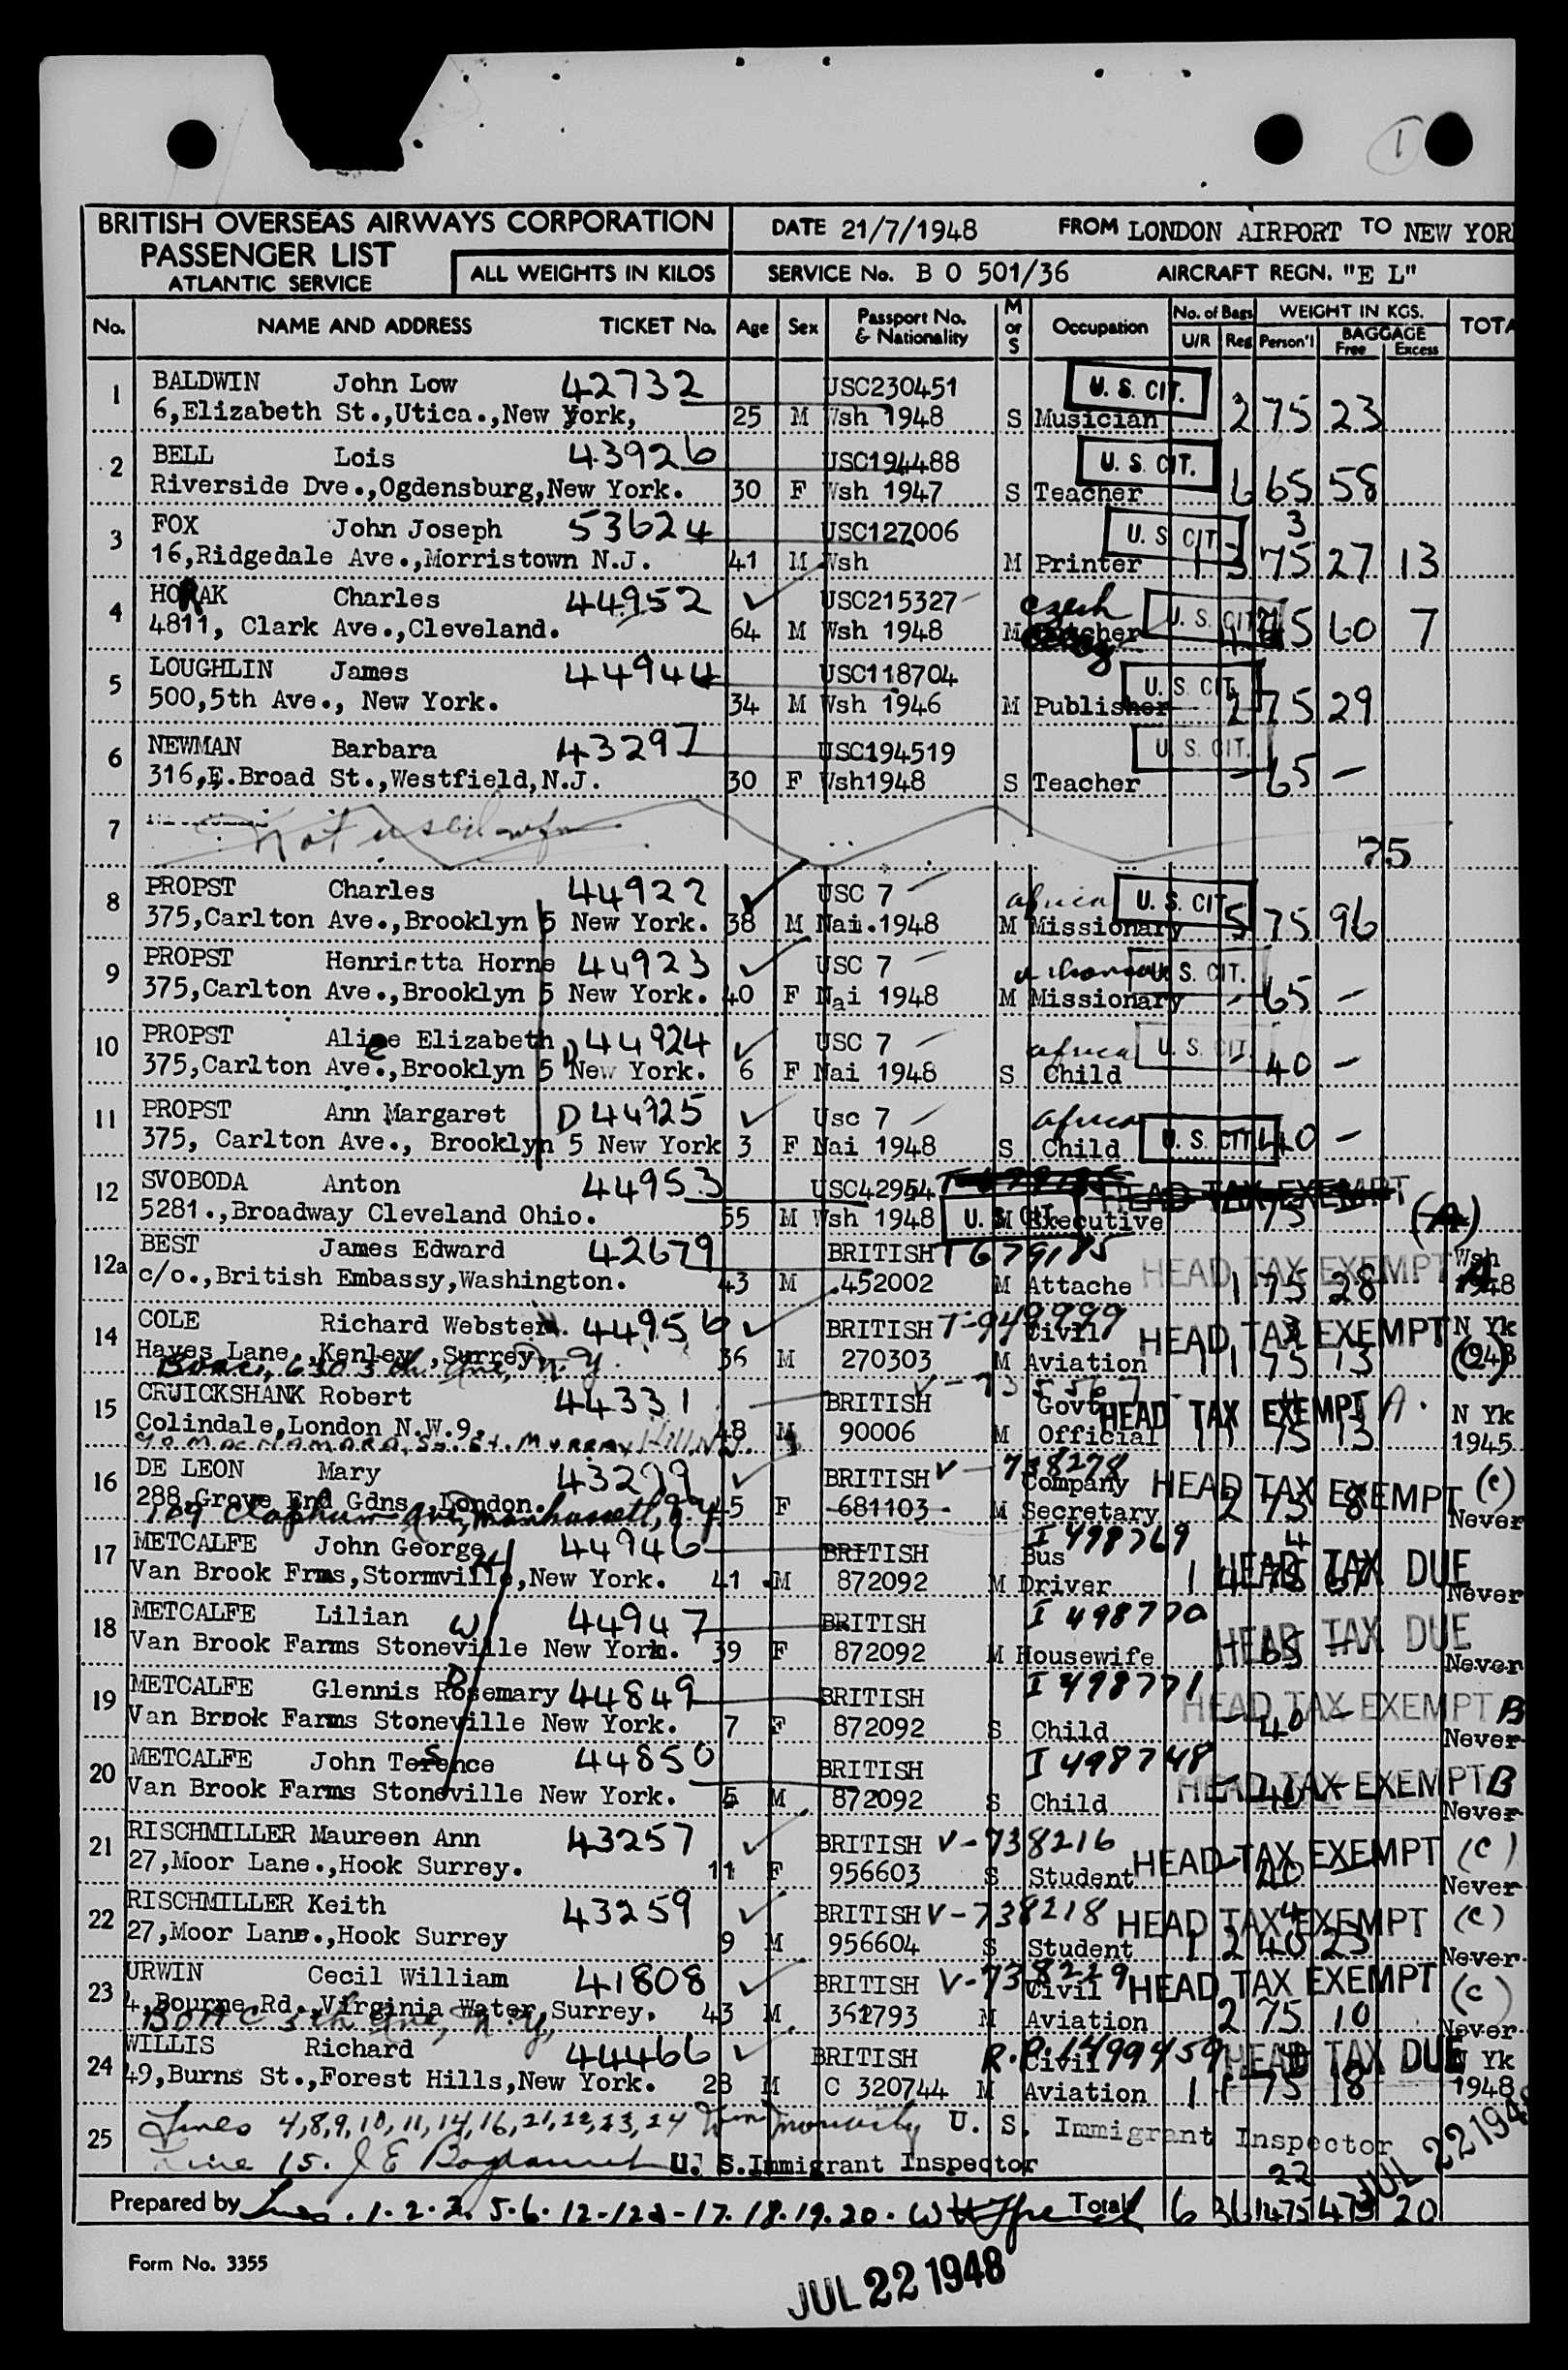 1
BRITISH OVERSEAS AIRWAYS CORPORATION
PASSENGER LIST
ATLANTIC SERVICE
ALL WEIGHTS IN KILOS
DATE 21/7/1948 FROM LONDON AIRPORT TO NEW YOR
SERVICE No. B O 501/36 AIRCRAFT REGN. "E L"
No. NAME AND ADDRESS TICKET No. Age Sex Passport No. & Nationality M or S Occupation No. of Bags U/R Reg WEIGHT IN KGS. Person'l BAGGAGE Free Excess TOTA
1 BALDWIN John Low 42732 USC230451 U. S. CIT.
6,Elizabeth St.,Utica.,New York, 25 M Wsh 1948 S Musician 2 75 23
2 BELL Lois 43926 USC194488 U. S. CIT.
Riverside Dve.,Ogdensburg,New York. 30 F Wsh 1947 S Teacher 6 65 58
3 FOX John Joseph 53624 USC127006 U. S. CIT. 3
16,Ridgedale Ave.,Morristown N.J. 41 M Wsh M Printer 1 3 75 27 13
4 HORAK Charles 44952 USC215327 Czech U. S. CIT.
4811, Clark Ave.,Cleveland. 64 M Wsh 1948 M 75 60 7
5 LOUGHLIN James 44944 USC118704 U. S. CIT.
500,5th Ave., New York. 34 M Wsh 1946 M Publisher 2 75 29
6 NEWMAN Barbara 43297 USC194519 U. S. CIT.
316,E.Broad St.,Westfield,N.J. 30 F Wsh1948 S Teacher - 65 -
7 Not used
75
8 PROPST Charles 44922 USC 7 africa U. S. CIT.
375,Carlton Ave.,Brooklyn 5 New York. 38 M Nai.1948 M Missionary 5 75 96
9 PROPST Henrietta Horne 44923 USC 7 U. S. CIT.
375,Carlton Ave.,Brooklyn 5 New York. 40 F Nai 1948 M Missionary - 65 -
10 PROPST Alice Elizabeth D 44924 USC 7 africa U. S. CIT.
375,Carlton Ave.,Brooklyn 5 New York. 6 F Nai 1948 S Child - 40 -
11 PROPST Ann Margaret D 44925 Usc 7 africa
375, Carlton Ave., Brooklyn 5 New York 3 F Nai 1948 S Child U. S. CIT. 40 -
12 SVOBODA Anton 44953 USC42954 HEAD TAX EXEMPT
5281.,Broadway Cleveland Ohio. 55 M Wsh 1948 U. S. CIT. M Executive 75 (A)
12a BEST James Edward 42679 BRITISH T 679185 HEAD TAX EXEMPT A Wsh
c/o.,British Embassy,Washington. 43 M .452002 M Attache 1 75 28 1948
14 COLE Richard Webster. 44956 BRITISH T-949999 Civil HEAD TAX EXEMPT N Yk
Hayes Lane.,Kenley.,Surrey 36 M 270303 M Aviation 1 1 75 13 1948 (C)
BOAC, 630 5th Ave, N.Y.
15 CRUICKSHANK Robert 44331 BRITISH V-735567 Govt HEAD TAX EXEMPT A. N Yk
Colindale,London N.W.9. 48 M 90006 M Official 1 1 75 13 1945
16 DE LEON Mary 43299 BRITISH V-738278 Company HEAD TAX EXEMPT (C)
288,Grove End Gdns.,London. 45 F 681103 M Secretary 2 75 8 Never
109 Clapham Ave, Manhassett, N.Y.
17 METCALFE John George H 44946 BRITISH I 498769 Bus 4 HEAD TAX DUE
Van Brook Frms,Stormville,New York. 41 M 872092 M Driver 1 4 75 67 Never
18 METCALFE Lilian W 44947 BRITISH I 498770 HEAD TAX DUE
Van Brook Farms Stoneville New York. 39 F 872092 M Housewife 65 - Never
19 METCALFE Glennis Rosemary D 44849 BRITISH I 498771 HEAD TAX EXEMPT B
Van Brook Farms Stoneville New York. 7 F 872092 S Child - 40 - Never
20 METCALFE John Terence S 44850 BRITISH I 498748 HEAD TAX EXEMPT B
Van Brook Farms Stoneville New York. 5 M 872092 S Child - 40 - Never
21 RISCHMILLER Maureen Ann 43257 BRITISH V-738216 HEAD TAX EXEMPT (C)
27,Moor Lane.,Hook Surrey. 11 F 956603 S Student - 40 - Never
22 RISCHMILLER Keith 43259 BRITISH V-738218 HEAD TAX EXEMPT (C) 4
27,Moor Lane.,Hook Surrey 9 M 956604 S Student 1 2 40 23 Never
23 URWIN Cecil William 41808 BRITISH V-738229 Civil HEAD TAX EXEMPT (C)
4,Bourne Rd.,Virginia Water,Surrey. 43 M 361793 M Aviation 2 75 10 Never
BOAC 5th Ave, N.Y,
24 WILLIS Richard 44466 BRITISH R.P. 1499459 Civil HEAD TAX DUE N Yk
49,Burns St.,Forest Hills,New York. 28 M C 320744 M Aviation 1 1 75 18 1948
25 Lines 4,8,9,10,11,14,16,21,22,23,24 U. S. Immigrant Inspector
Line 15. J E U. S.Immigrant Inspector JUL 22 1948
22
Prepared by Lines. 1.2.3.5.6.12-12a-17.18.19.20. Total 6 36 1475 473 20
Form No. 3355
JUL 22 1948